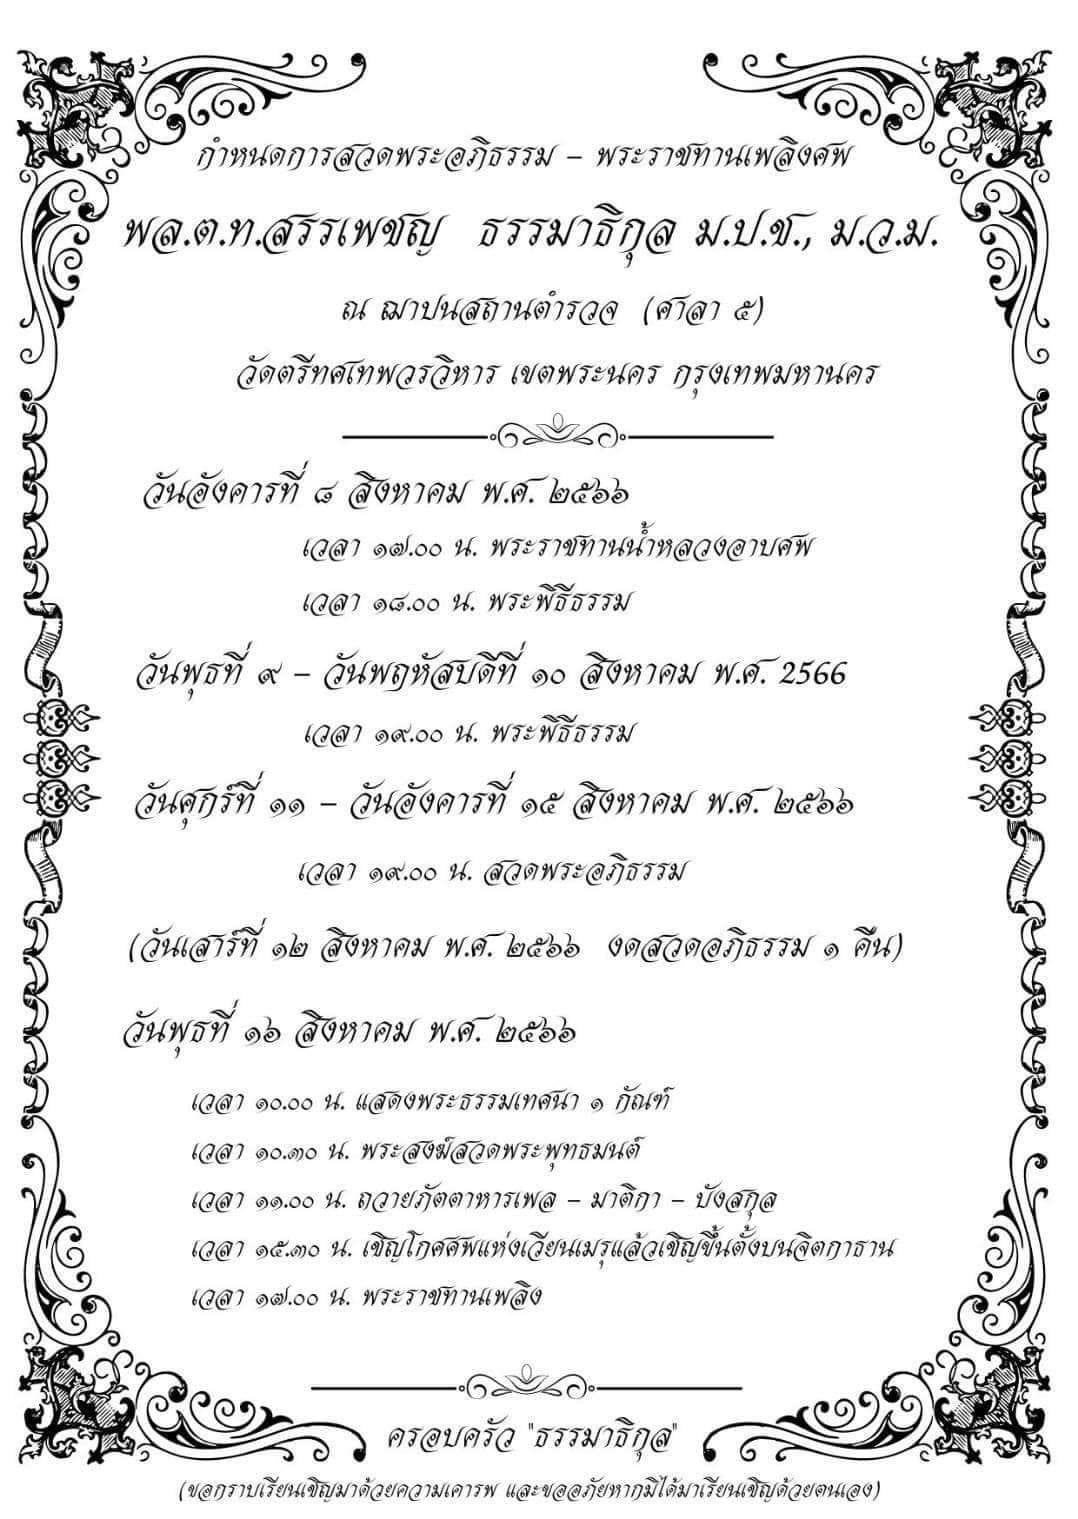 กำหนดการสวดพระอภิธรรม – พระราชทานเพลิงศพ
พล.ต.ท.สรรเพชญ ธรรมาธิกุล ม.ป.ช., ม.ว.ม.
ณ ฌาปนสถานตำรวจ (ศาลา ๕)
วัดตรีทศเทพวรวิหาร เขตพระนคร กรุงเทพมหานคร
วันอังคารที่ ๘ สิงหาคม พ.ศ. ๒๕๖๖
เวลา ๑๗.๐๐ น. พระราชทานน้ำหลวงอาบศพ
เวลา ๑๘.๐๐ น. พระพิธีธรรม
วันพุธที่ ๙ – วันพฤหัสบดีที่ ๑๐ สิงหาคม พ.ศ. 2566
เวลา ๑๙.๐๐ น. พระพิธีธรรม
วันศุกร์ที่ ๑๑ – วันอังคารที่ ๑๕ สิงหาคม พ.ศ. ๒๕๖๖
เวลา ๑๙.๐๐ น. สวดพระอภิธรรม
(วันเสาร์ที่ ๑๒ สิงหาคม พ.ศ. ๒๕๖๖ งดสวดอภิธรรม ๑ คืน)
วันพุธที่ ๑๖ สิงหาคม พ.ศ. ๒๕๖๖
เวลา ๑๐.๐๐ น. แสดงพระธรรมเทศนา ๑ กัณฑ์
เวลา ๑๐.๓๐ น. พระสงฆ์สวดพระพุทธมนต์
เวลา ๑๑.๐๐ น. ถวายภัตตาหารเพล – มาติกา – บังสกุล
เวลา ๑๕.๓๐ น. เชิญโกศศพแห่งเวียนเมรุแล้วเชิญขึ้นตั้งบนจิตกาธาน
เวลา ๑๗.๐๐ น. พระราชทานเพลิง
ครอบครัว "ธรรมาธิกุล"
(ขอกราบเรียนเชิญมาด้วยความเคารพ และขออภัยหากมิได้มาเรียนเชิญด้วยตนเอง)